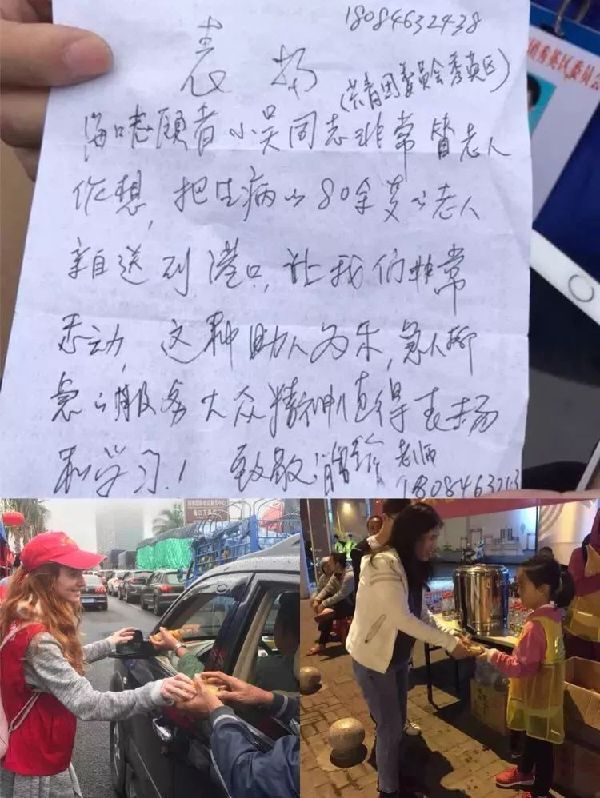 18084632438
表扬
(共青团委员会秀英区)
海口志愿者小吴同志非常替老人
作想，把生病的80余岁的老人
亲自送到港口，让我们非常
感动，这种助人为乐，急人所
急的服务大众精神值得表扬
和学习！ 致敬 老师